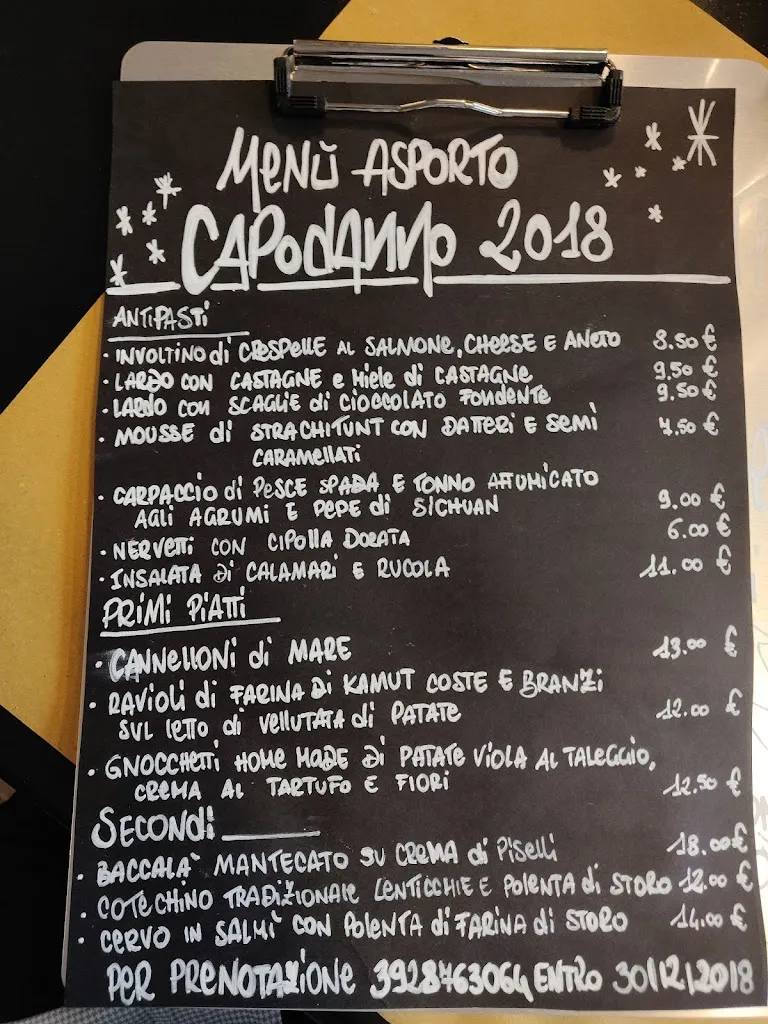 MENÙ ASPORTO
CAPODANNO 2018
ANTIPASTI
· INVOLTINO di CRESPELLE AL SALMONE, CHEESE E ANETO 8.50 €
· LARDO CON CASTAGNE e Miele di CASTAGNE 9.50 €
· LARDO con SCAGLIE di CIOCCOLATO FONDENTE 9.50 €
· MOUSSE di STRACHITUNT CON DATTERI E SEMI 7.50 €
CARAMELLATI
· CARPACCIO di PESCE SPADA E TONNO AFFUMICATO
AGLI AGRUMI E PEPE di SICHUAN 9.00 €
· NERVETTI CON CIPOLLA DORATA 6.00 €
· INSALATA DI CALAMARI E RUCOLA 11.00 €
PRIMI PIATTI
· CANNELLONI di MARE 13.00 €
· RAVIOLI di FARINA DI KAMUT COSTE E BRANZI
SUL LETTO di VELLUTATA di PATATE 12.00 €
· GNOCCHETTI HOME MADE DI PATATE VIOLA AL TALEGGIO,
CREMA AL TARTUFO E FIORI 12.50 €
SECONDI
· BACCALA' MANTECATO SU CREMA di PISELLI 18.00 €
· COTECHINO TRADIZIONALE LENTICCHIE E POLENTA di STORO 12.00 €
· CERVO IN SALMÌ CON POLENTA di FARINA di STORO 14.00 €
PER PRENOTAZIONE 3928763064 ENTRO 30/12/2018